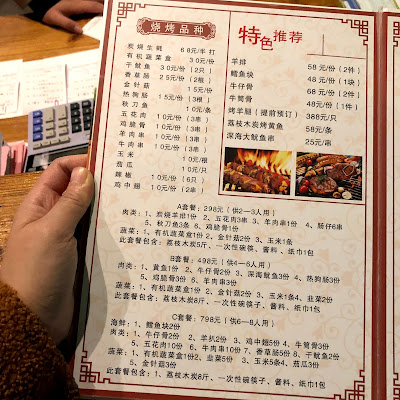 烧烤品种
炭烧生蚝 68元/半打
有机蔬菜盒 30元/份
干鱿鱼 30元/份(2只)
香草肠 25元/份(3根)
金针菇 15元/份
热狗肠 15元/份(3根)
秋刀鱼 10元/份(2条)
五花肉 10元/份(3串)
鸡脆骨 10元/份(3串)
羊肉串 10元/份(3串)
牛肉串 10元/份(3串)
玉米 10元/份
茄瓜 10元/份
辣椒 10元/份(6只)
鸡中翅 10元/份(2串)
特色推荐
羊排 58元/份(2件)
鳕鱼块 48元/份(1块)
牛仔骨 68元/份(2件)
牛筒骨 48元/份(1件)
烤羊腿(提前预订) 388元/只
荔枝木炭烤黄鱼 58元/条
深海大鱿鱼串 25元/串
A套餐:298元(供2—3人用)
肉类:1、炭烧羊排1份 2、五花肉3串 3、羊肉串1份 4、肠仔6串
5、秋刀鱼3条 6、鸡脆骨1份
蔬菜:1、有机蔬菜盒1份 2、金针菇2份 3、玉米1条
此套餐包含:荔枝木炭5斤、一次性碗筷子、酱料、纸巾1包
B套餐:498元(供4—6人用)
肉类:1、黄鱼1份 2、牛仔骨2份 3、深海鱿鱼3份 4、热狗肠3份
5、鸡脆骨3份 6、羊肉串3份
蔬菜:1、有机蔬菜盒1份 2、金针菇2份 3、玉米5条4、韭菜2份
此套餐包含:荔枝木炭8斤、一次性碗筷子、酱料、纸巾1包
C套餐:798元(供6—8人用)
海鲜:1、鳕鱼块2份
肉类:1、牛仔骨2份 2、羊扒2份 3、鸡中翅5份 4、牛筒骨3份
5、五花肉10份 6、牛肉串10份 7、香草肠5份 8、干鱿鱼2份
蔬菜:1、有机蔬菜盒1份 2、韭菜5份 3、玉米5条4、茄瓜3份
5、金针菇3份
此套餐包含:荔枝木炭8斤、一次性碗筷子、酱料、纸巾1包